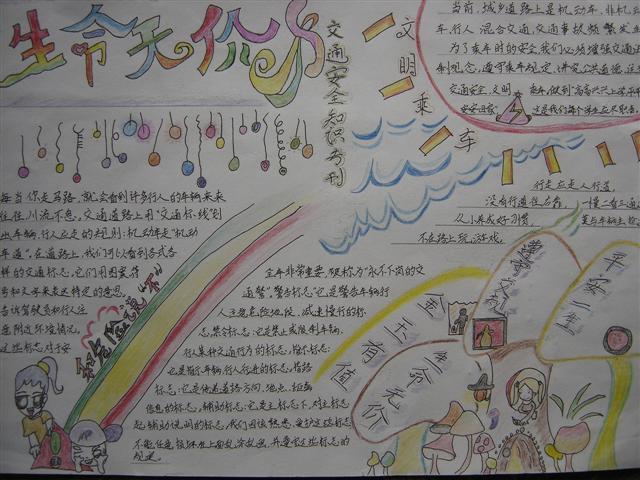 生命无价
交通安全知识专刊
文明乘车
当前,城乡道路上是机动车、非机动
车、行人混合交通,交通事故频繁发生
为了乘车时的安全我们必须增强交通法
制观念,遵守乘车规定,讲究公共道德,注
交通安全,文明乘车,做到"高高兴兴上学,平平
安安回家"这是我们每个学生应尽职责
每当你走马路,就会看到许多行人的车辆来来
往往,川流不息,交通道路上用"交通标线"划
出车辆、行人应走的规则:机动车走"机动
车道",在道路上,我们可以看到各式各
样的交通标志,它们用图案符
号和文字来表达特定的意思
告诉驾驶员和行人注
意附近环境情况,
这些标志对于安
和危险说"不"
全非常重要,被称为"永不下岗的交
通警"警告标志:它是警告车辆行
人注意危险地段、减速慢行的标
志,禁令标志:它是禁止或限制车辆、
行人某种交通行为的标志,指示标志:
它是指示车辆、行人行进的标志,指路
标志:它是传递道路方向、地点、距离
信息的标志,辅助标志:它是主标志下,对主标志
起辅助说明的标志,我们应该熟悉、爱护这些标志
不能任意
行走应走人行道,
没有行道往右靠,
从小养成好习惯,
不在路上玩游戏,
一慢二看三通
莫与车辆去抢
遵章交规
平安一生
金玉有值
生命无价